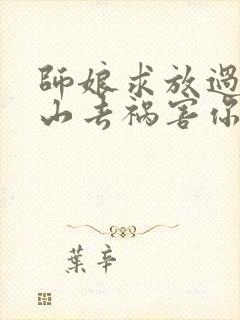 師娘求放過
山去禍害你
葉辛